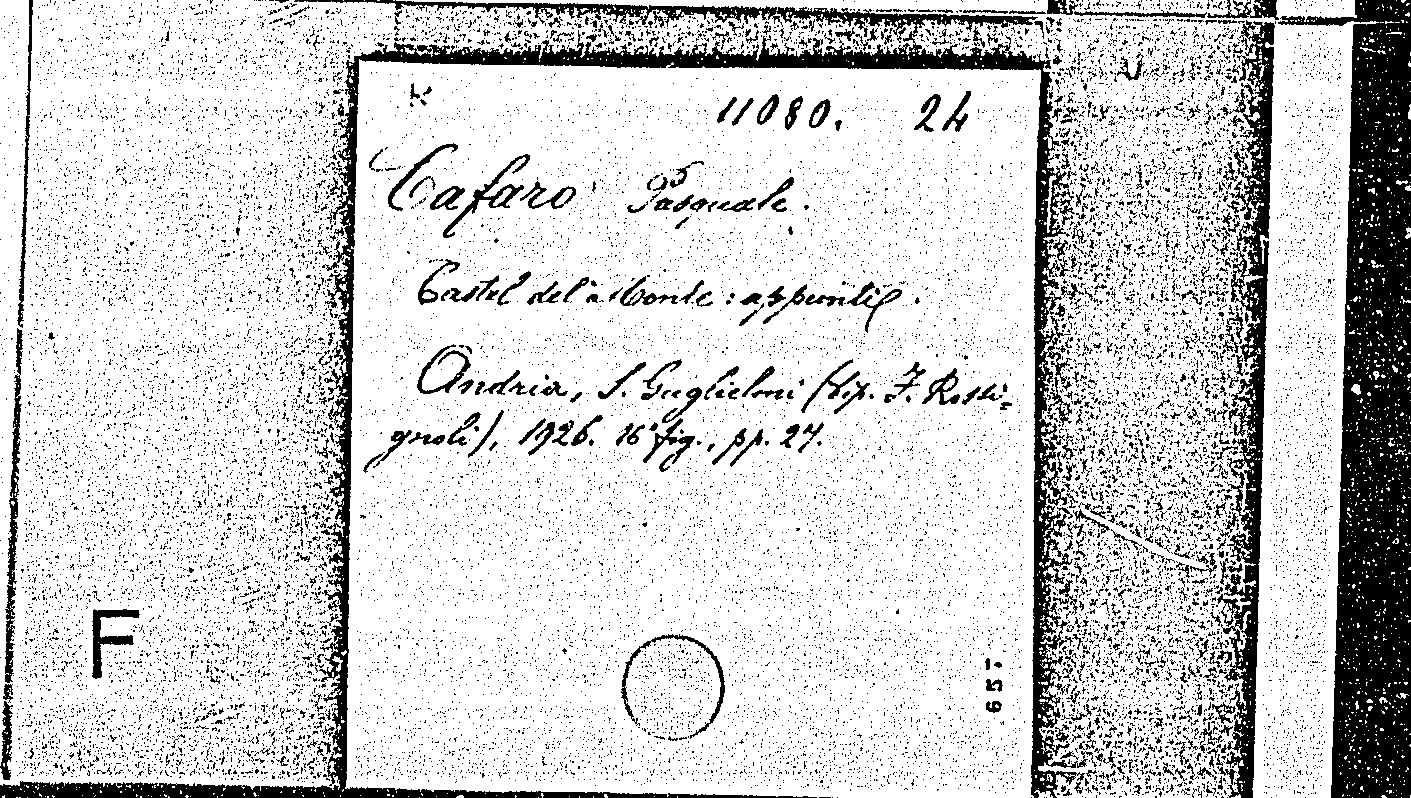 11080. 24
Cafaro Pasquale.
Castel del Monte: appunti.
Andria, S. Guglielmi (tip. F. Rossi-
gnoli), 1926. 16° fig., pp. 27.
F
657